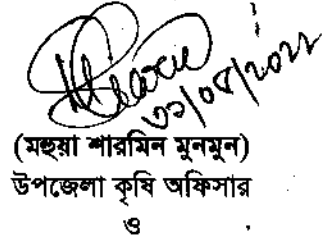 ৩১/০৮/২০২২
(মহুয়া শারমিন মুনমুন)
উপজেলা কৃষি অফিসার
ও